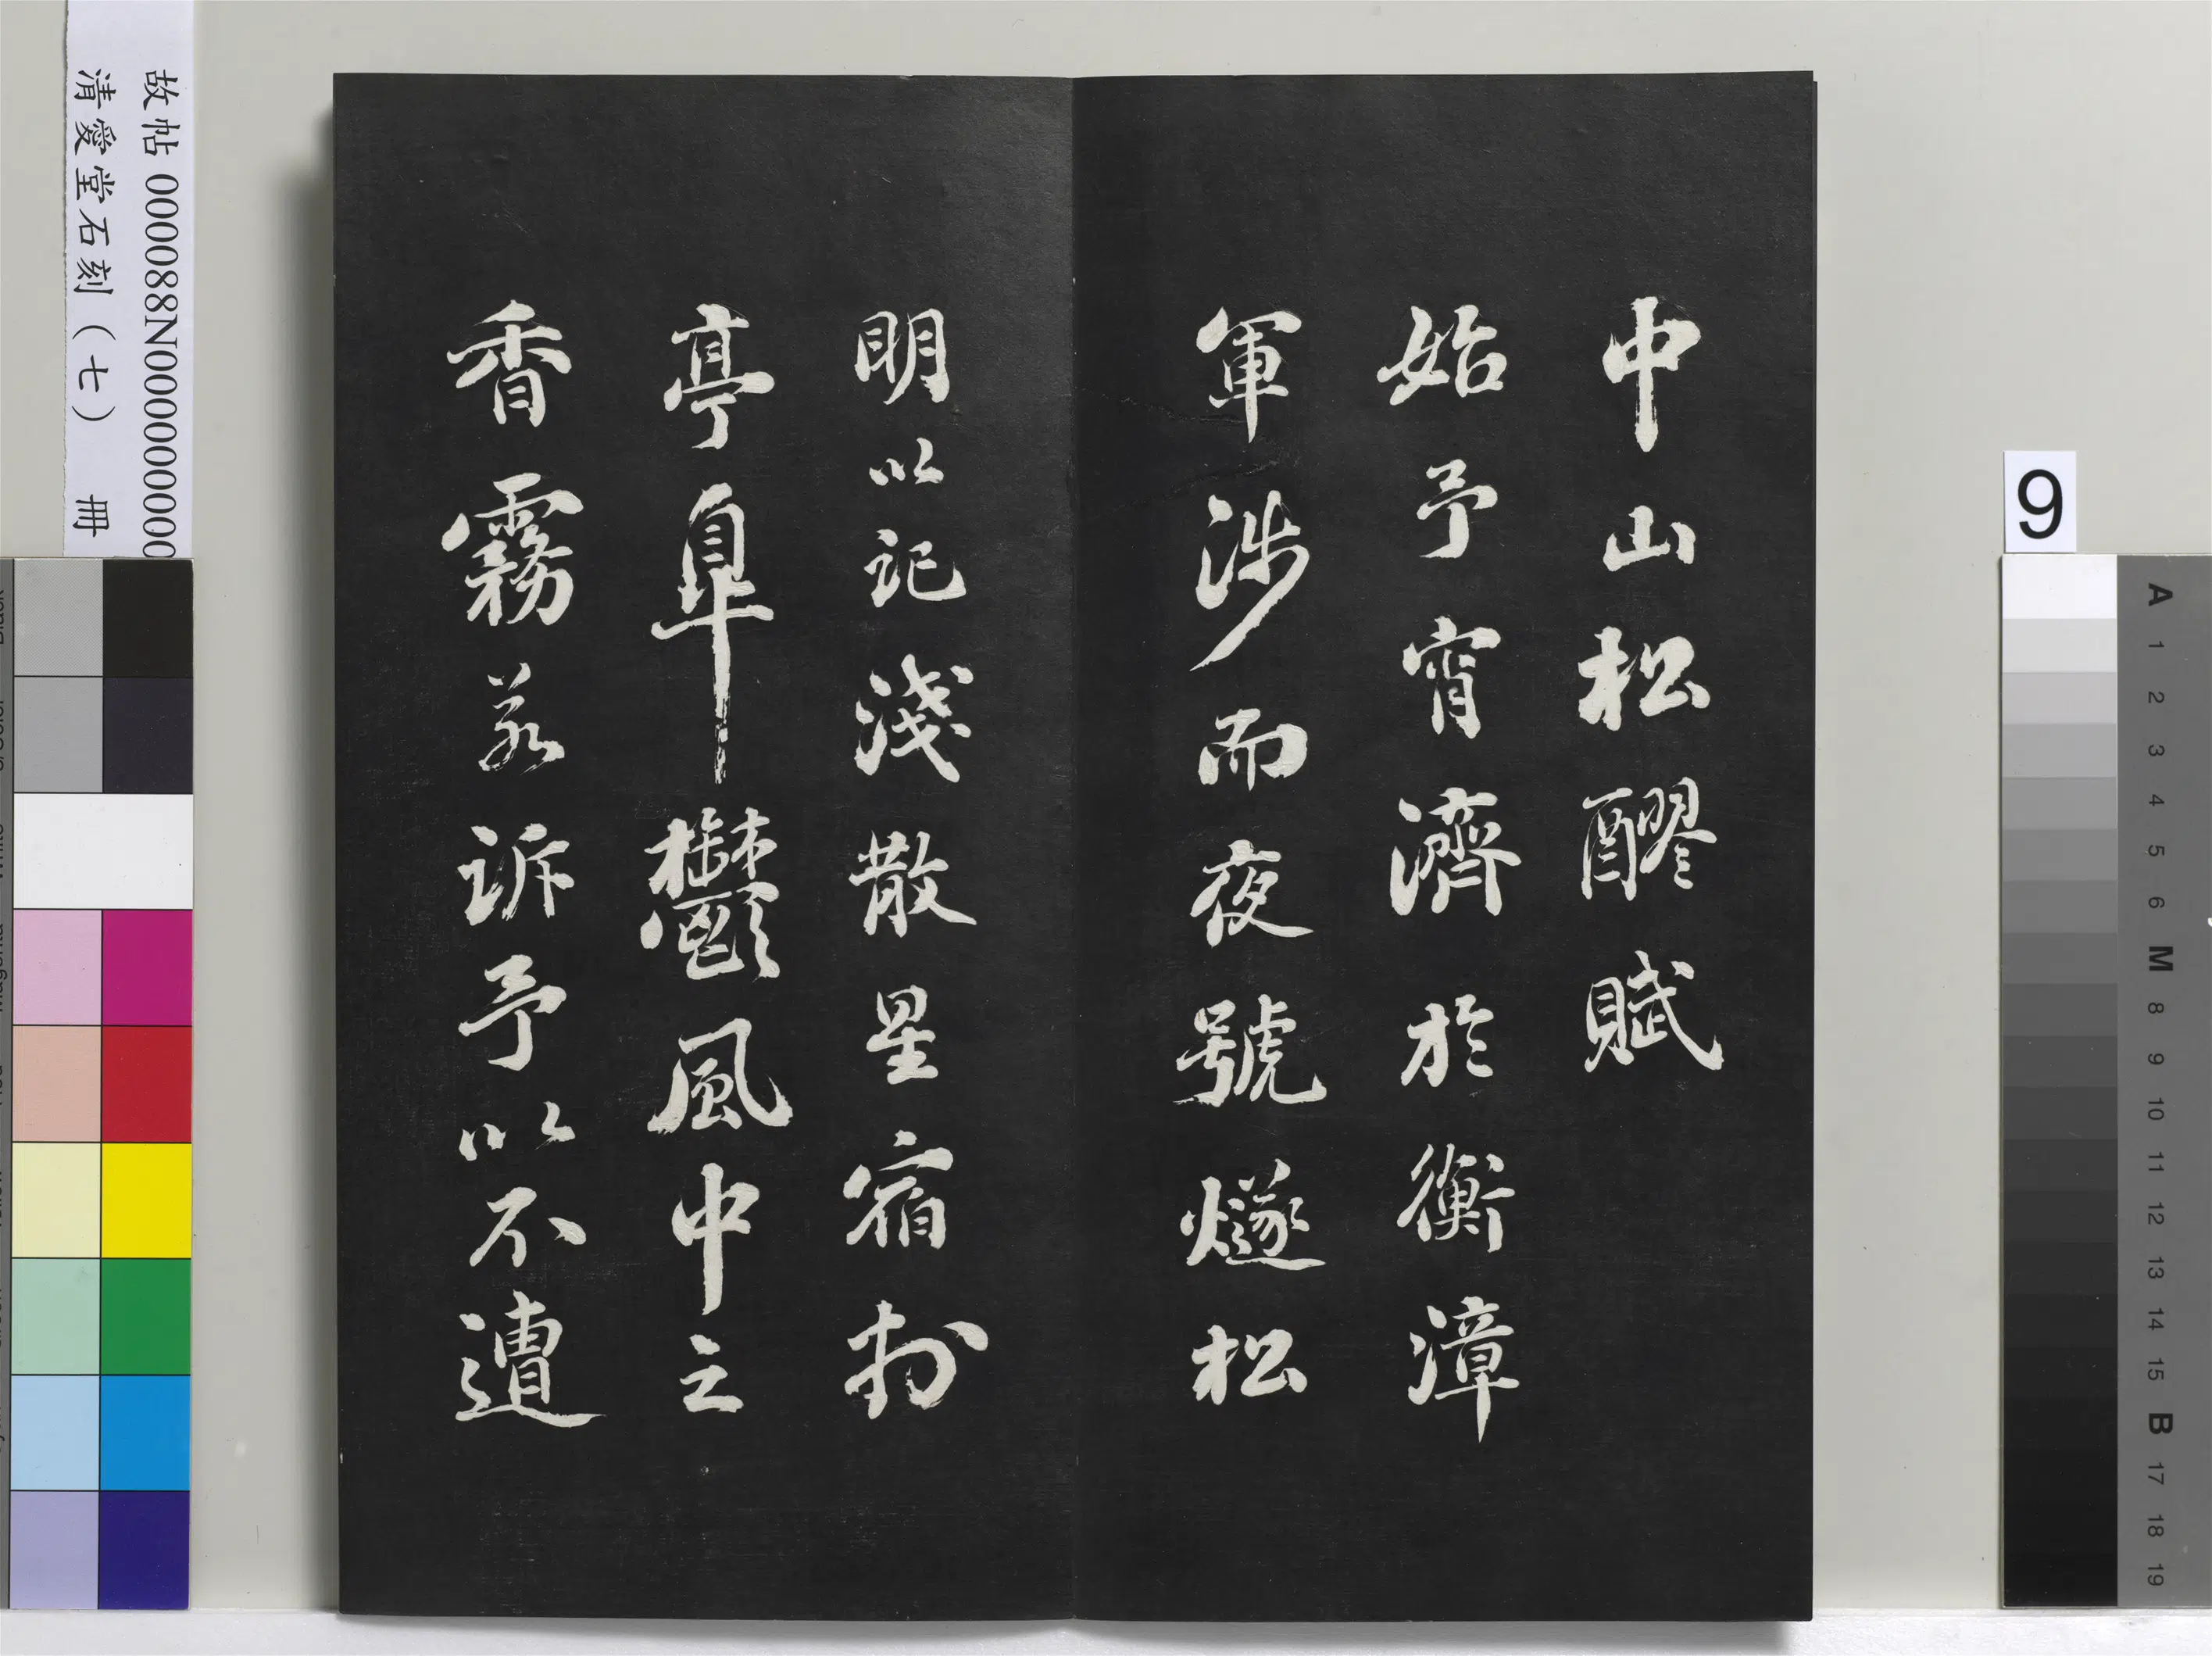 中山松醪賦
始予宵濟於衡漳
軍涉而夜號燧松
明以記淺散星宿於
亭皐鬱風中之
香霧若訴予以不遭
故帖 000088N000000000
清愛堂石刻（七） 冊
9
A 1 2 3 4 5 6 M 8 9 10 11 12 13 14 15 B 17 18 19